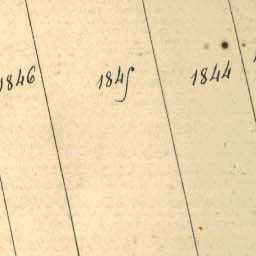 1846 1845 1844